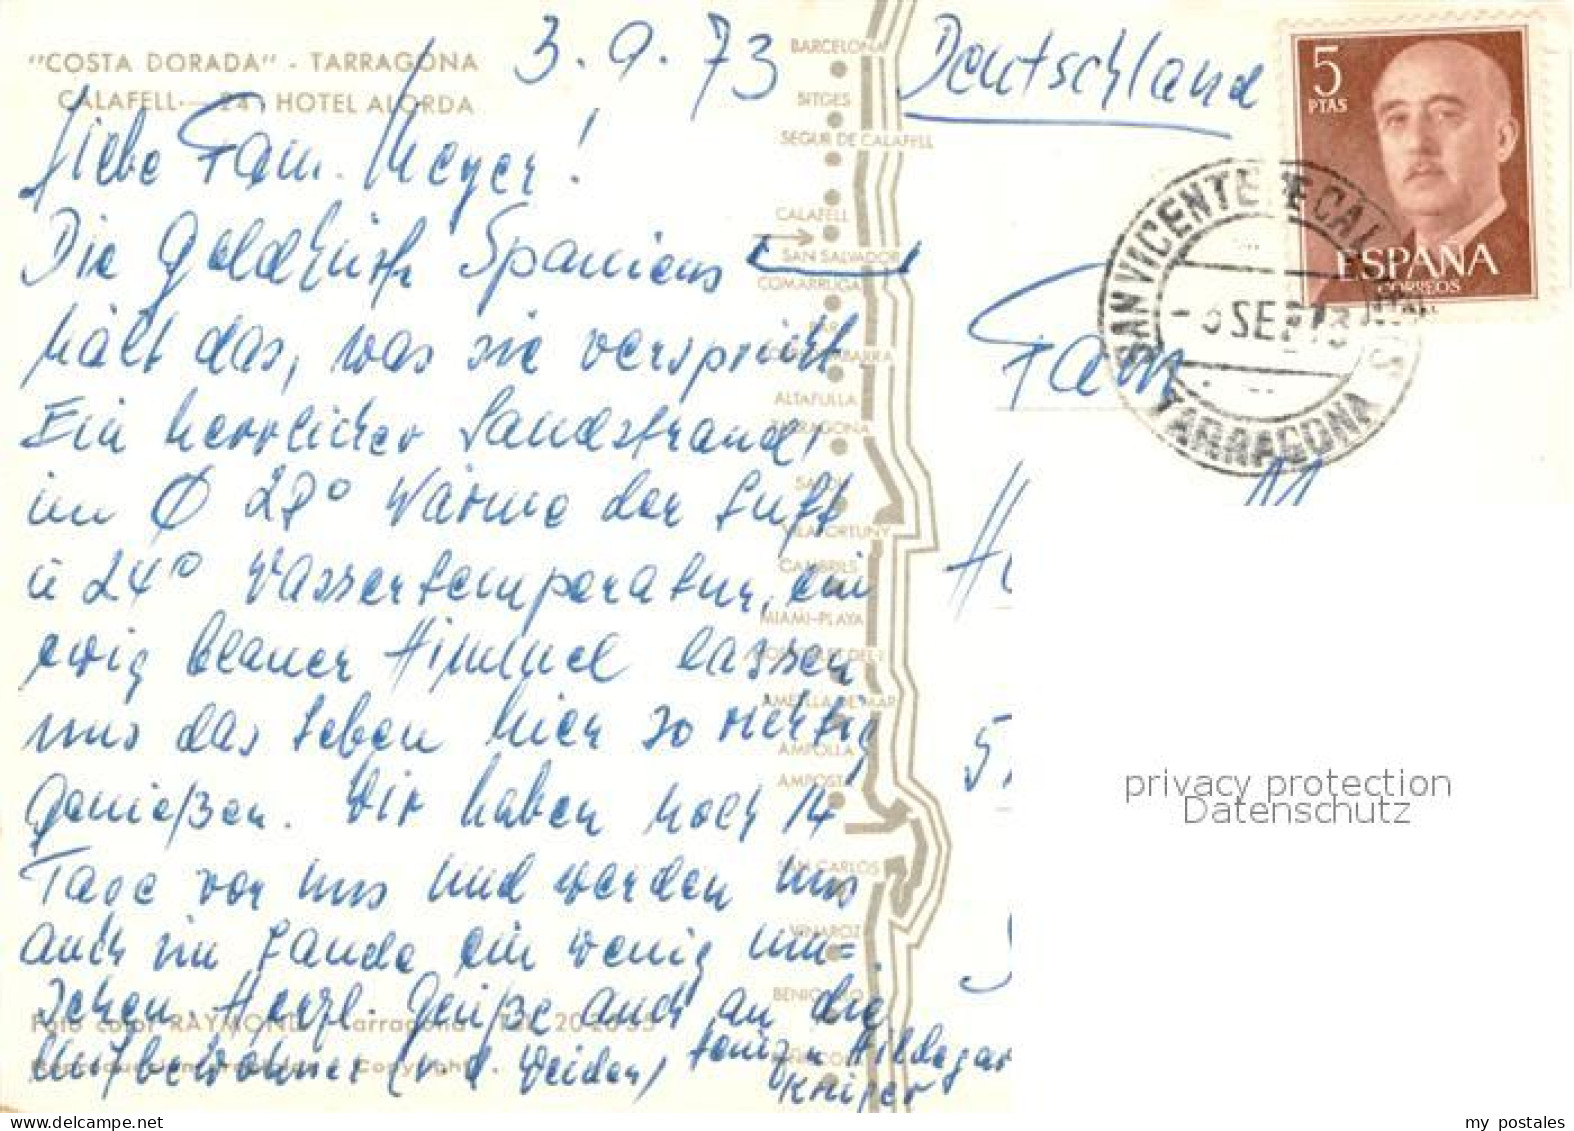 "COSTA DORADA" - TARRAGONA
CALAFELL - 24 HOTEL ALORDA
3.9.73
Liebe Fam. Meyer!
Die Goldküste Spaniens
hält das, was sie verspricht
Ein herrlicher Sandstrand,
im Ø 28° Wärme der Luft
u 24° Wassertemperatur, ein
ewig blauer Himmel lassen
uns das Leben hier so richtig
genießen. Wir haben noch 14
Tage vor uns und werden uns
auch im Lande ein wenig um=
sehen. Herzl. Grüße auch an die
Mitbewohner (v. d. Weiden)
Hildegard
Foto color RAYMOND Tarragona Tel. 20 20 55
Reproducción Copyright
BARCELONA
SITGES
SEGUR DE CALAFELL
CALAFELL
SAN SALVADOR
COMARRUGA
ALTAFULLA
TARRAGONA
SALOU
VILAFORTUNY
CAMBRILS
MIAMI-PLAYA
AMETLLA DE MAR
AMPOLLA
AMPOSTA
SAN CARLOS
VINAROZ
BENICARLO
Deutschland
5
PTAS
ESPAÑA
CORREOS
SAN VICENTE DE CAL
SEP 73
TARRAGONA
Fam
privacy protection
Datenschutz
my postales